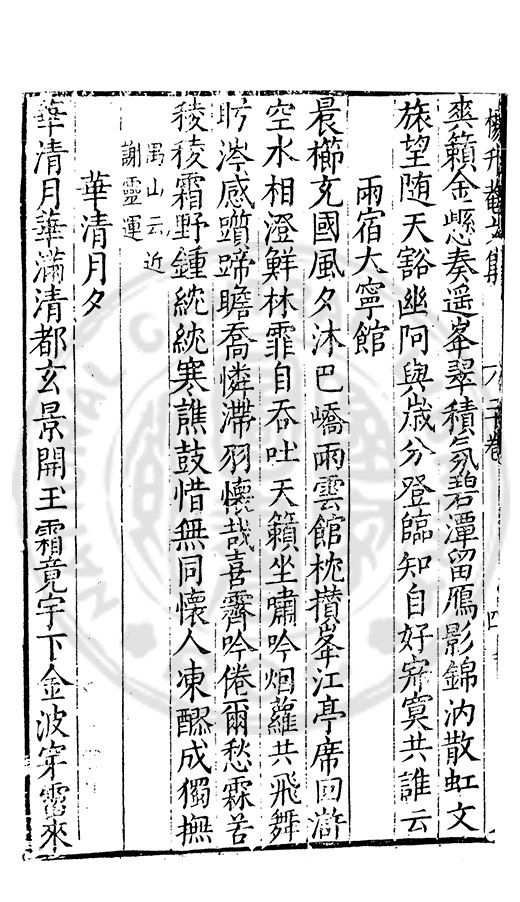 爽籟金懸奏遥峯翠積氛碧潭留鴈影錦汭散虹文
旅望随天豁幽阿與歳分登臨知自好寂寞共誰云
雨宿大寧館
晨櫛兖國風夕沐巴嶠雨雲館枕攅峯江亭席回滸
空水相澄鮮林霏自吞吐天籟坐嘯吟烟蘿共飛舞
眝涔感躓蹄瞻喬憐滯羽懷哉喜霽吟倦爾愁霖苦
稜稜霜野鍾紞紞寒譙鼓惜無同懷人凍醪成獨撫
禺山云近
謝靈運
華清月夕
華清月華滿清都玄景開玉霜竟宇下金波穿霤來